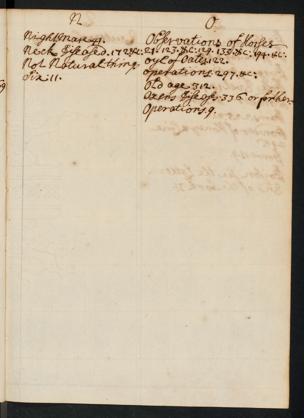 N
Nightmare 41.
Neck Diseased. 172 &c:
Not Natural thing.
Six 11.
O
Observations of Horses
21. 123. &c. 29. 133. &c. 194. &c.
oyl of Oates. 122.
operations. 297. &c:
Old age. 312.
Oxens Diseases. 336. or further
Operations. 9.